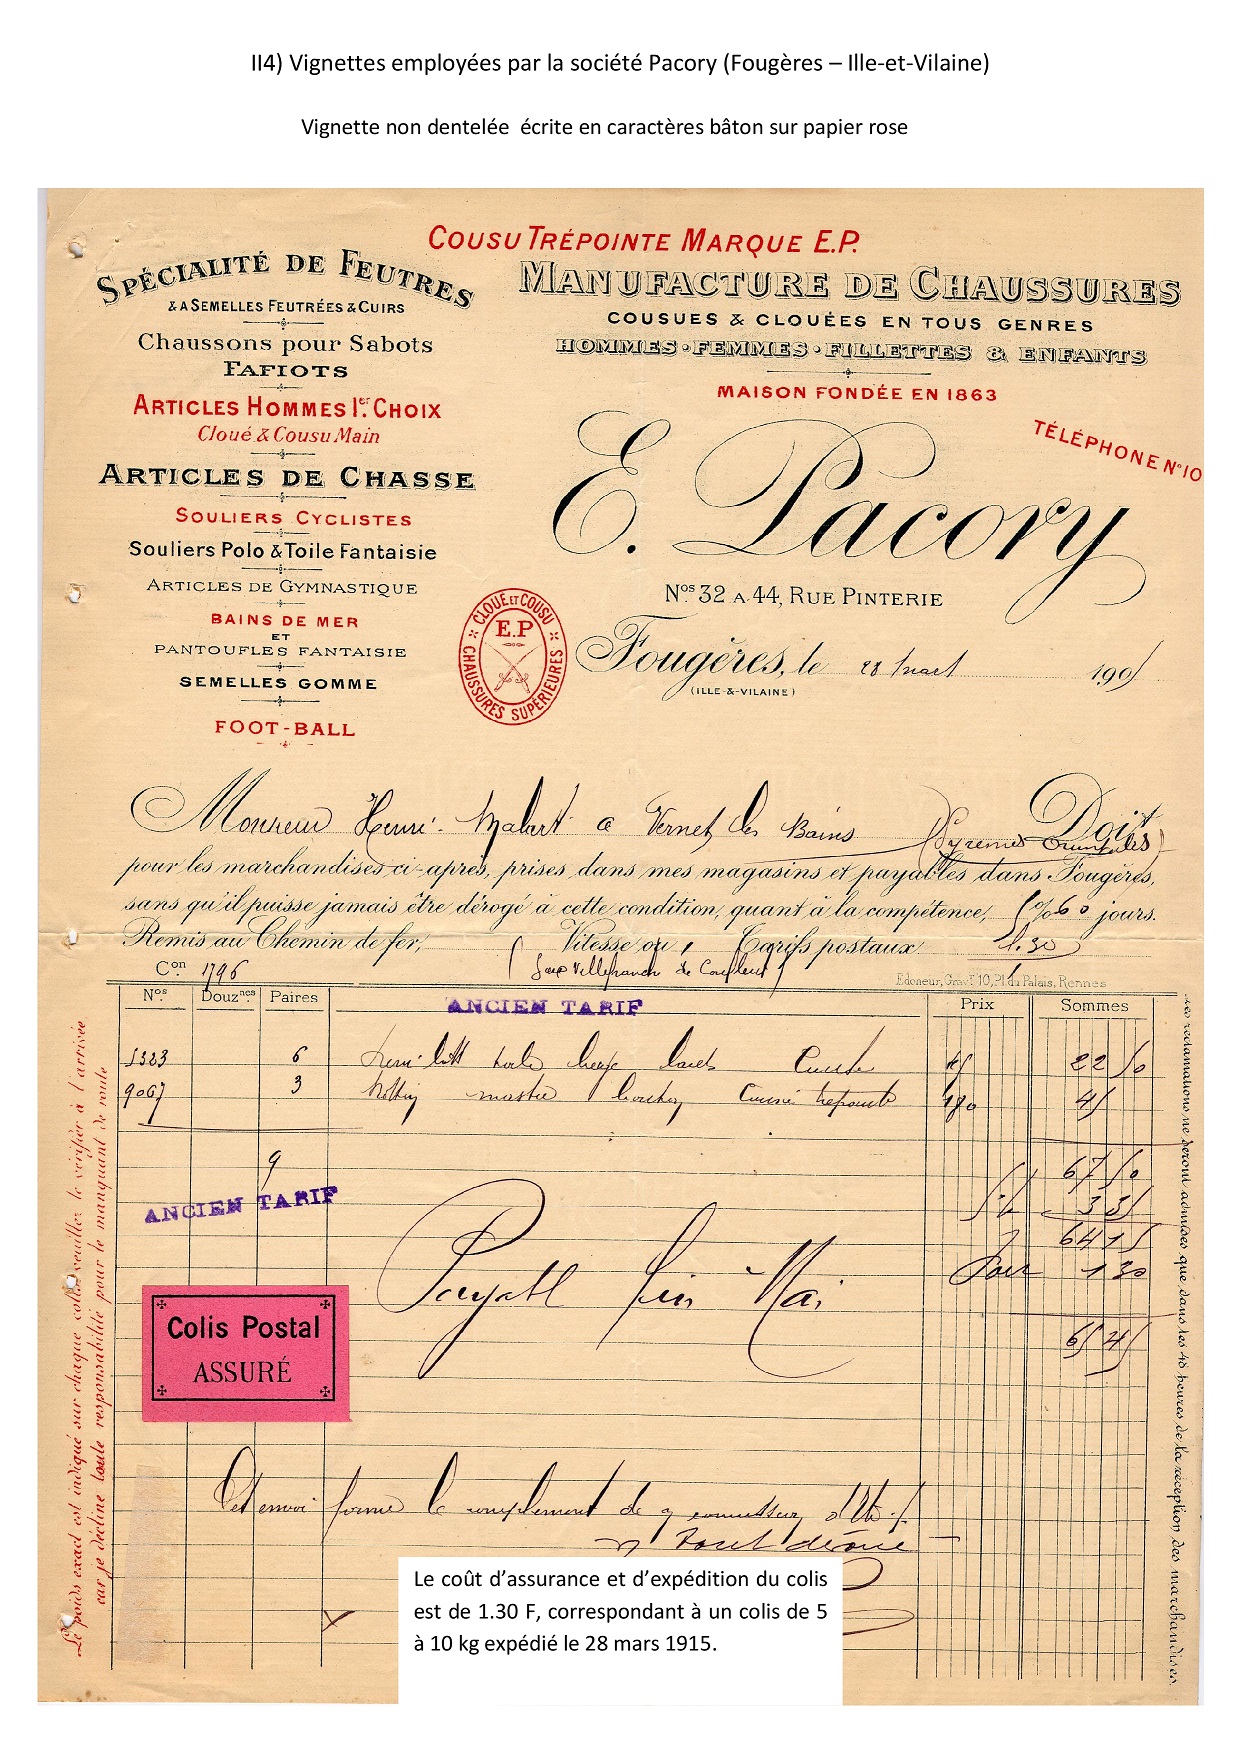 II4) Vignettes employées par la société Pacory (Fougères – Ille-et-Vilaine)
Vignette non dentelée écrite en caractères bâton sur papier rose
COUSU TRÉPOINTE MARQUE E.P.
SPÉCIALITÉ DE FEUTRES
& A SEMELLES FEUTRÉES & CUIRS
Chaussons pour Sabots
FAFIOTS
ARTICLES HOMMES 1er CHOIX
Cloué & Cousu Main
ARTICLES DE CHASSE
SOULIERS CYCLISTES
Souliers Polo & Toile Fantaisie
ARTICLES DE GYMNASTIQUE
BAINS DE MER
ET
PANTOUFLES FANTAISIE
SEMELLES GOMME
FOOT-BALL
MANUFACTURE DE CHAUSSURES
COUSUES & CLOUÉES EN TOUS GENRES
HOMMES · FEMMES · FILLETTES & ENFANTS
MAISON FONDÉE EN 1863
TÉLÉPHONE No 10
E. Pacory
Nos 32 A 44, RUE PINTERIE
CLOUÉ ET COUSU
E.P
CHAUSSURES SUPÉRIEURES
Fougères, le 28 mars 190
(ILLE-&-VILAINE)
Monsieur Henri Malart a Vernet les Bains (Pyrenées Orientales) Doit
pour les marchandises ci-après, prises dans mes magasins et payables dans Fougères,
sans qu'il puisse jamais être dérogé à cette condition, quant à la compétence, % 60 jours.
Remis au Chemin de fer, Vitesse ou Tarifs postaux 1.30
Con 1796 Villefranche de Conflent
Edoneur, Gravr 10, Pl. du Palais, Rennes
Nos Douznes Paires ANCIEN TARIF Prix Sommes
1323 6 22 50
9067 3 180 45
9 67 50
3 35
ANCIEN TARIF 64 15
Port 1 30
Payable fin Mai
65 45
Colis Postal
ASSURÉ
Cet envoi forme le complément de
Le poids exact est indiqué sur chaque colis, veuillez le vérifier à l'arrivée
car je décline toute responsabilité pour le manquant de route
Les réclamations ne seront admises que dans les 48 heures de la réception des marchandises.
Le coût d'assurance et d'expédition du colis
est de 1.30 F, correspondant à un colis de 5
à 10 kg expédié le 28 mars 1915.